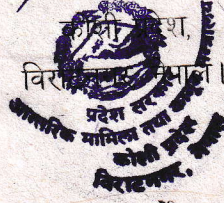 कोशी प्रदेश,
विराटनगर, नेपाल।
प्रदेश सरकार
आन्तरिक मामिला तथा कानून
कोशी प्रदेश
विराटनगर, नेपाल